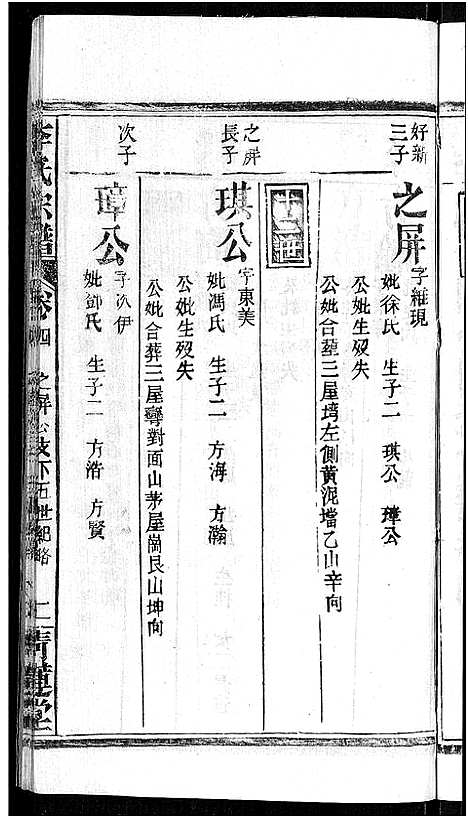 好新三子
之屏
字維現
妣徐氏 生子二 琪公 璋公
公妣生歿失
公妣合塟三屋塆左側黄泥壋乙山辛向
十二世
之屏長子
琪公
字東美
妣馮氏 生子二 方海 方瀚
公妣生歿失
公妣合葬三屋彎對面山茅屋崗艮山坤向
次子
璋公
字次伊
妣鄧氏 生子二 方浩 方賢
李氏宗譜
卷四
之屏公支下五世紀略
二
青蓮堂